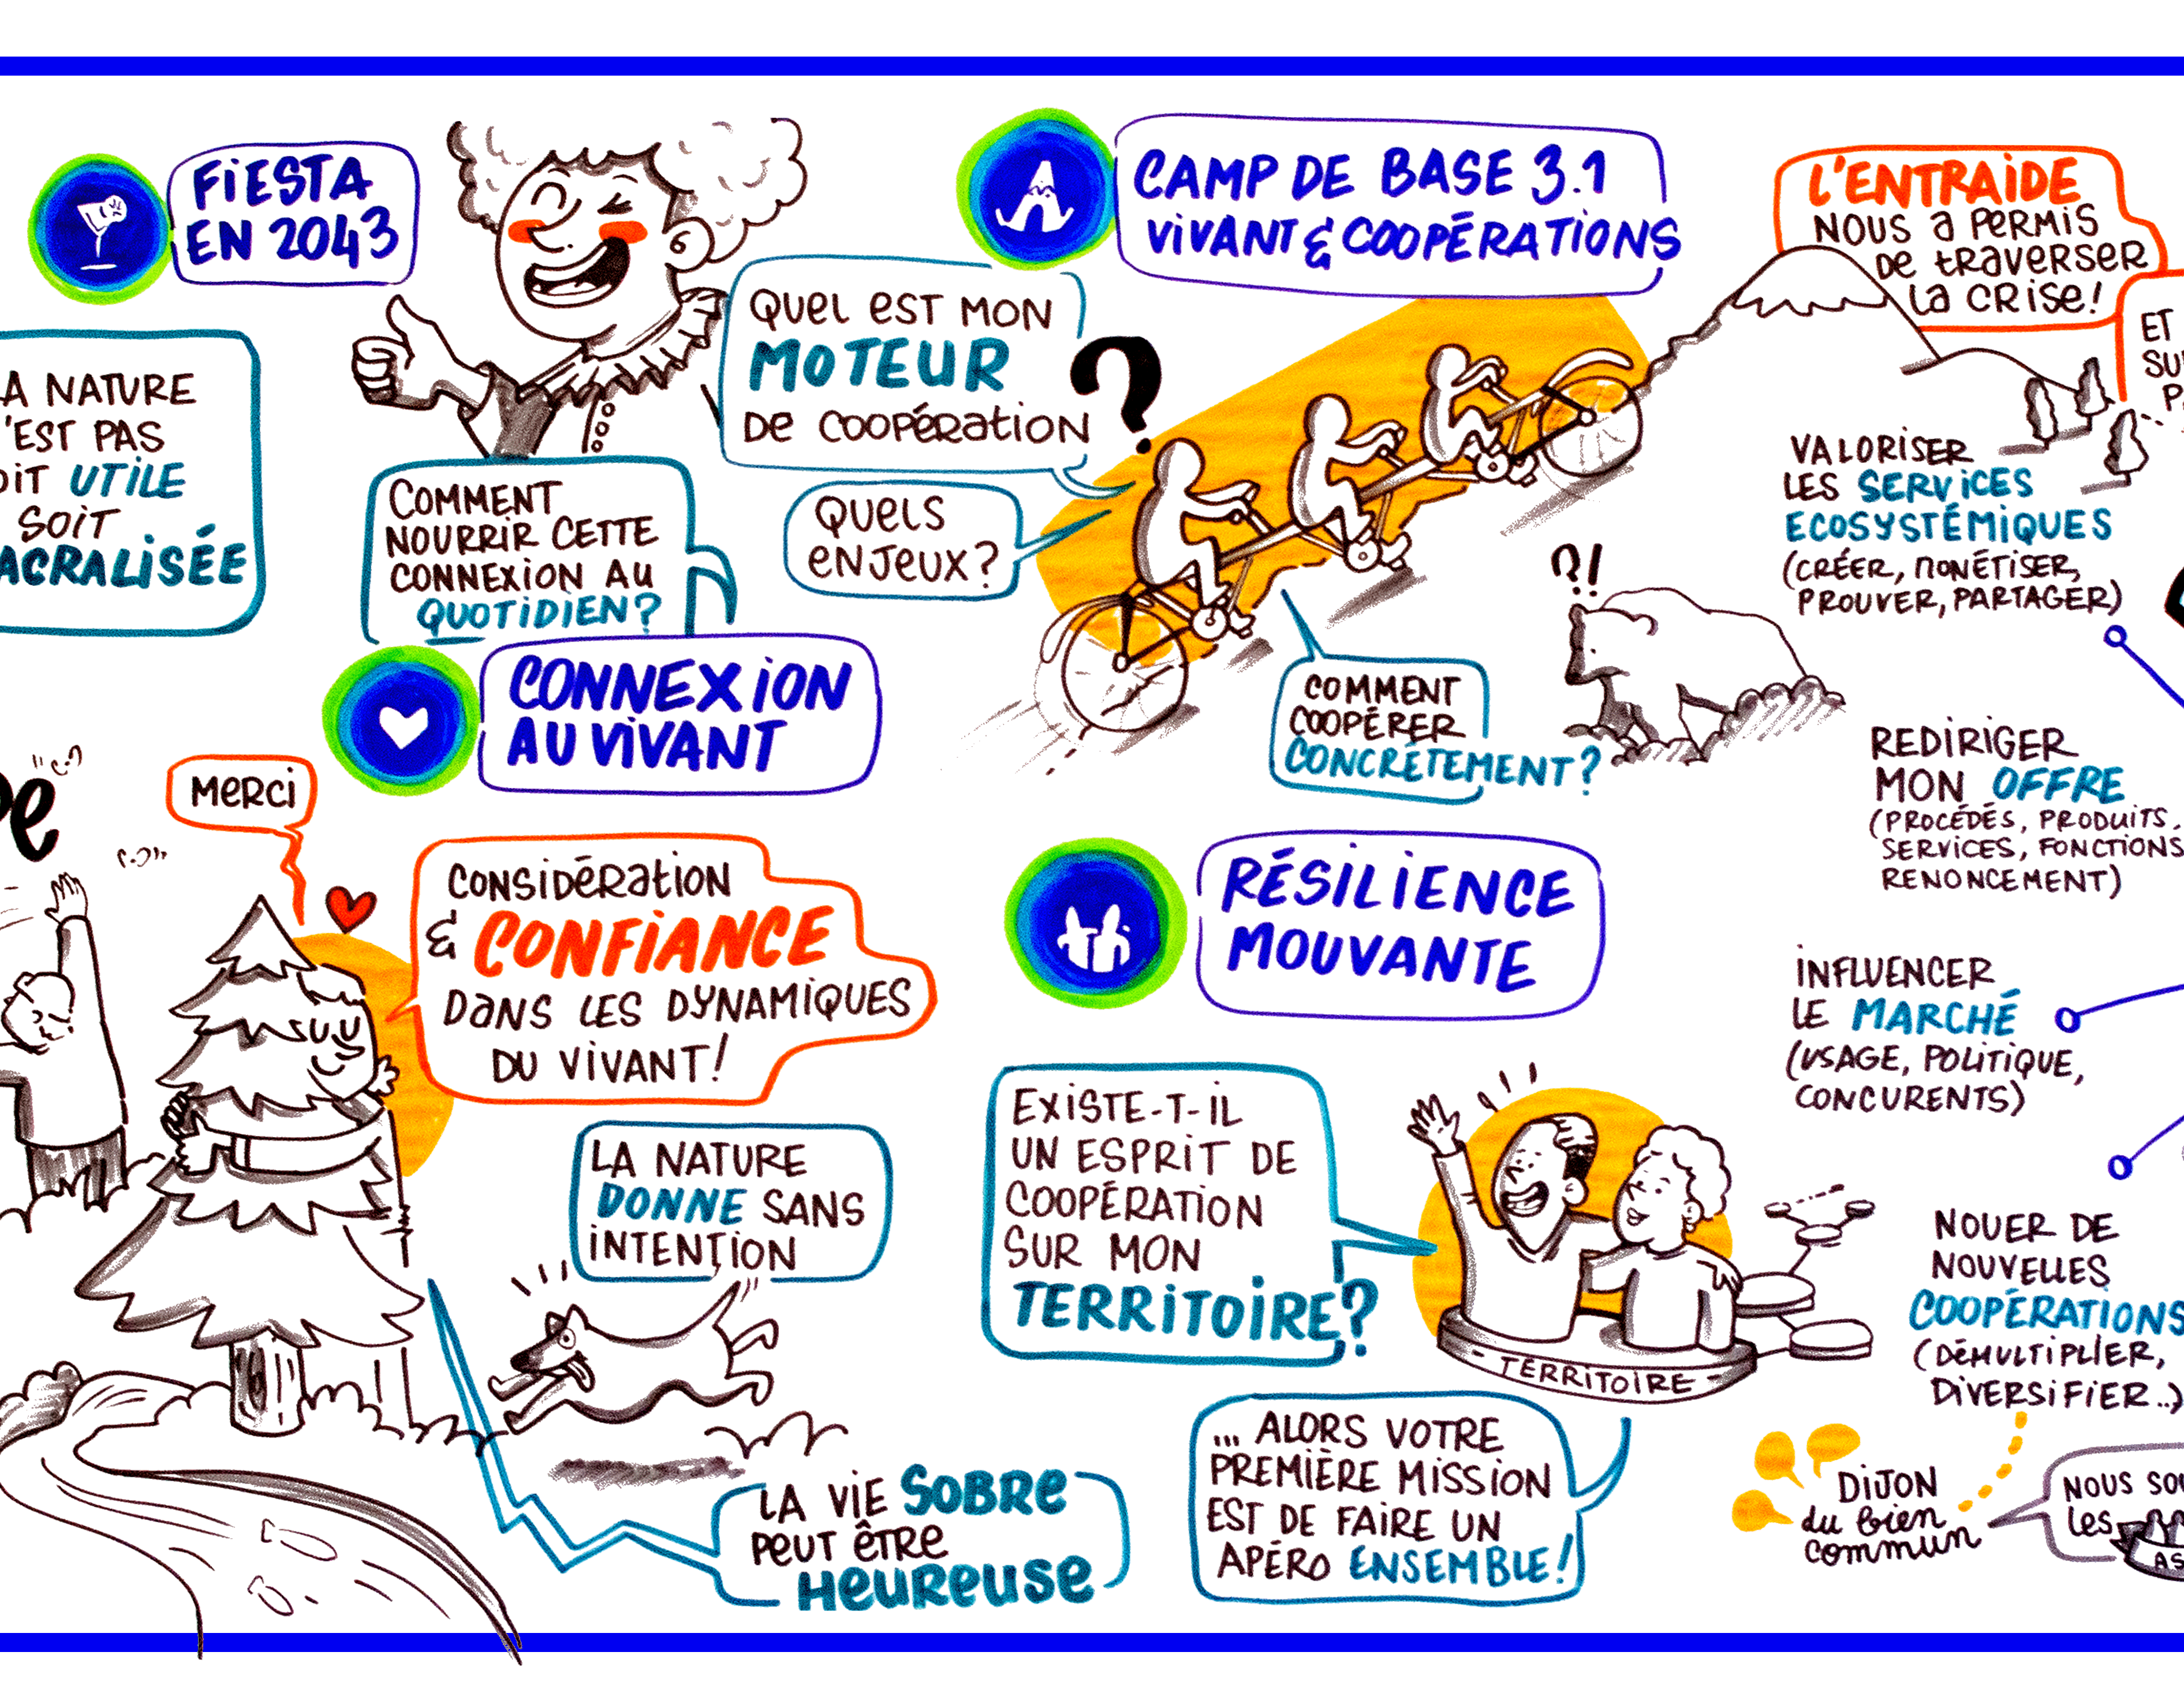 FiESTA
EN 2043
A NATURE
'EST PAS
OiT UTiLE
SOiT
ACRALiSÉE
QUEL EST MON
MOTEUR
DE COOPÉRATiON
?
QUELS
ENJEUX?
COMMENT
NOURRiR CETTE
CONNEXiON AU
QUOTiDiEN?
CONNEXiON
AU ViVANT
MERCi
CONSiDÉRATiON
& CONFiANCE
DANS LES DYNAMiQUES
DU ViVANT!
LA NATURE
DONNE SANS
iNTENTiON
LA ViE SOBRE
PEUT ÊTRE
HEUREUSE
CAMP DE BASE 3.1
ViVANT & COOPÉRATiONS
COMMENT
COOPÉRER
CONCRÈTEMENT?
?!
RÉSiLiENCE
MOUVANTE
EXiSTE-T-iL
UN ESPRiT DE
COOPÉRATiON
SUR MON
TERRiTOiRE?
- TERRiTOiRE -
... ALORS VOTRE
PREMIÈRE MiSSiON
EST DE FAiRE UN
APÉRO ENSEMBLE!
L'ENTRAiDE
NOUS A PERMiS
DE TRAVERSER
LA CRiSE!
ET
SU
P
VALORiSER
LES SERViCES
ECOSYSTÉMiQUES
(CRÉER, MONÉTiSER,
PROUVER, PARTAGER)
REDiRiGER
MON OFFRE
(PROCÉDÉS, PRODUiTS,
SERViCES, FONCTiONS
RENONCEMENT)
iNFLUENCER
LE MARCHÉ
(USAGE, POLiTiQUE,
CONCURENTS)
NOUER DE
NOUVELLES
COOPÉRATiONS
(DÉMULTiPLiER,
DiVERSiFiER..)
DiJON
du bien
commun
NOUS SO
LES
AS